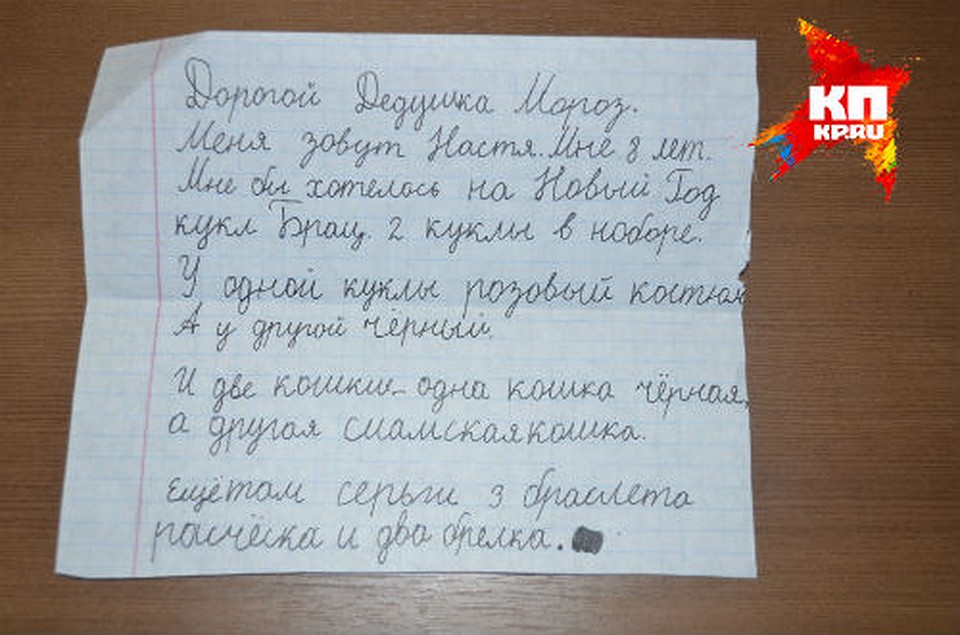 Дорогой Дедушка Мороз.
Меня зовут Настя. Мне 8 лет.
Мне бы хотелось на Новый Год
кукл Брац. 2 куклы в наборе.
У одной куклы розовый костюм
А у другой чёрный.
И две кошки - одна кошка чёрная,
а другая сиамская кошка.
ещётам серьги 3 браслета
расчёска и два брелка.
КП
KP.RU